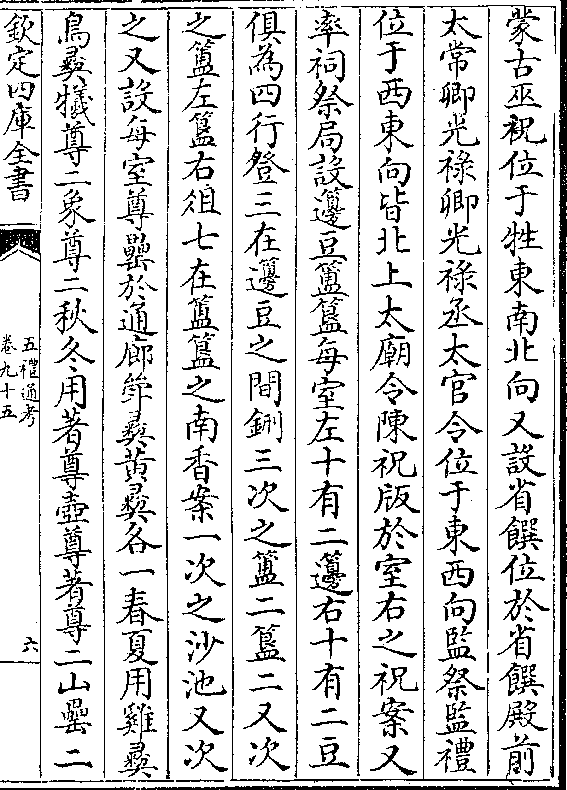 蒙古巫祝位于牲東南北向又設省饌位於省饌殿前
太常卿光祿卿光祿丞太官令位于東西向監祭監禮
位于西東向皆北上太廟令陳祝版於室右之祝案又
率祠祭局設籩豆簠簋每室左十有二籩右十有二豆
俱為四行登三在籩豆之間鉶三次之簠二簋二又次
之簠左簋右俎七在簠簋之南香案一次之沙池又次
之又設每室尊罍於通廊斝彛黃彛各一春夏用雞彛
鳥彛犧尊二象尊二秋冬用著尊壺尊著尊二山罍二
欽定四庫全書
五禮通考
卷九十五
六